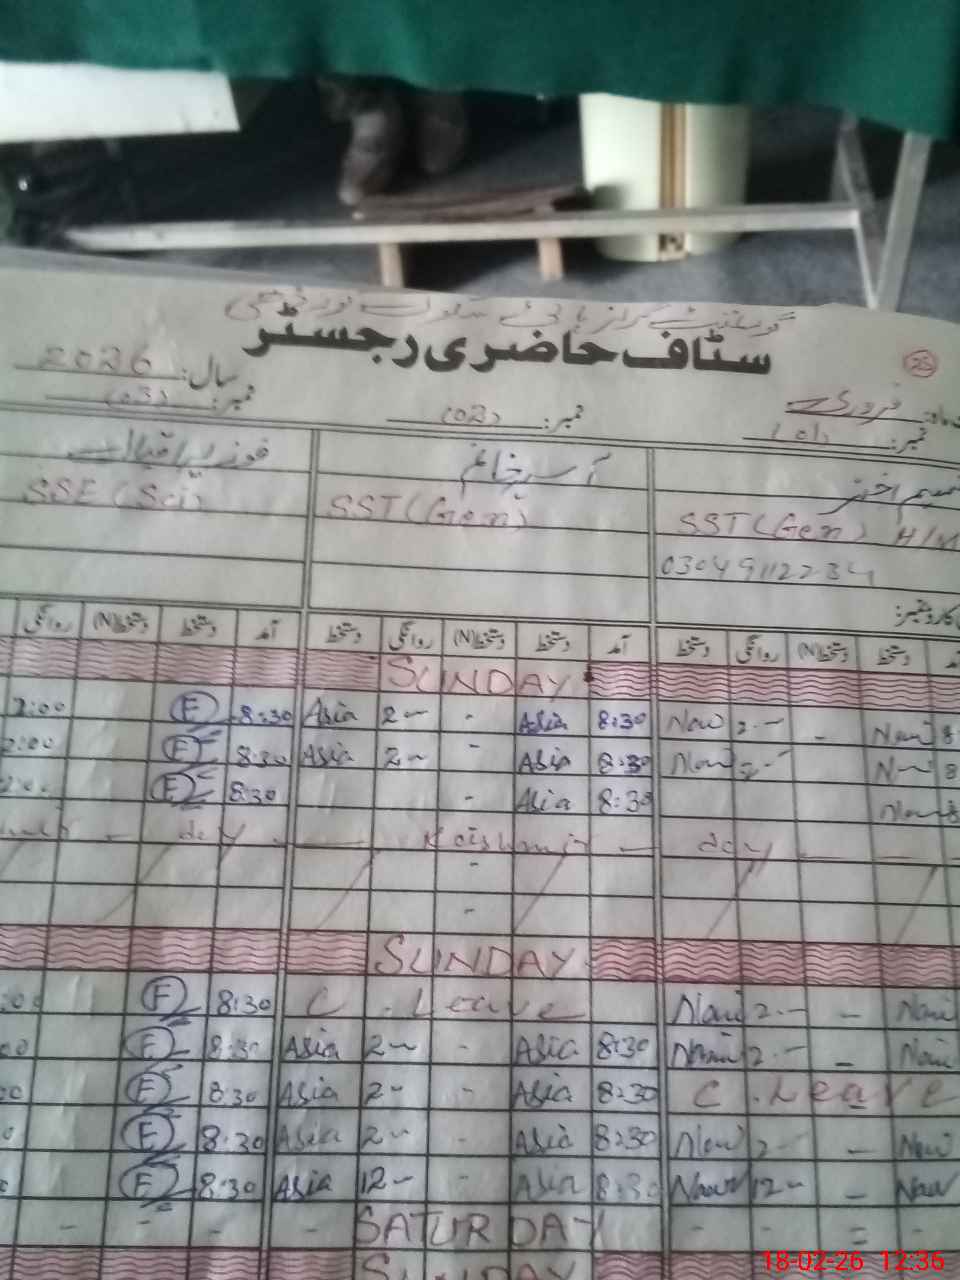 گورنمنٹ گرلز ہائی
سٹاف حاضری رجسٹر
25
فروری
سال: 2026
نمبر: (01)
نمبر: (02)
نمبر: (03)
نسیم اختر
آسیہ خانم
فوزیہ اقبال
SST (Gen) H/M
SST (Gen)
SSE (Sci)
03049112234
آمد دستخط دستخط(N) روانگی دستخط آمد دستخط دستخط(N) روانگی دستخط آمد دستخط دستخط(N) روانگی
SUNDAY
2:00 F 8:30 Asia 2 - Asia 8:30 2 - 8
2:00 F 8:30 Asia 2 - Asia 8:30 2 - 8
F 8:30 - Asia 8:30
day - Kashmir - day
-
-
SUNDAY
:00 F 8:30 C. Leave 2 -
00 F 8:30 Asia 2 - Asia 8:30 2 -
F 8:30 Asia 2 - Asia 8:30 C. Leave
F 8:30 Asia 2 - Asia 8:30 2 -
F 8:30 Asia 12 - Asia 8:30 12 -
- - - - SATURDAY - - - = -
SUNDAY
18-02-26 12:36